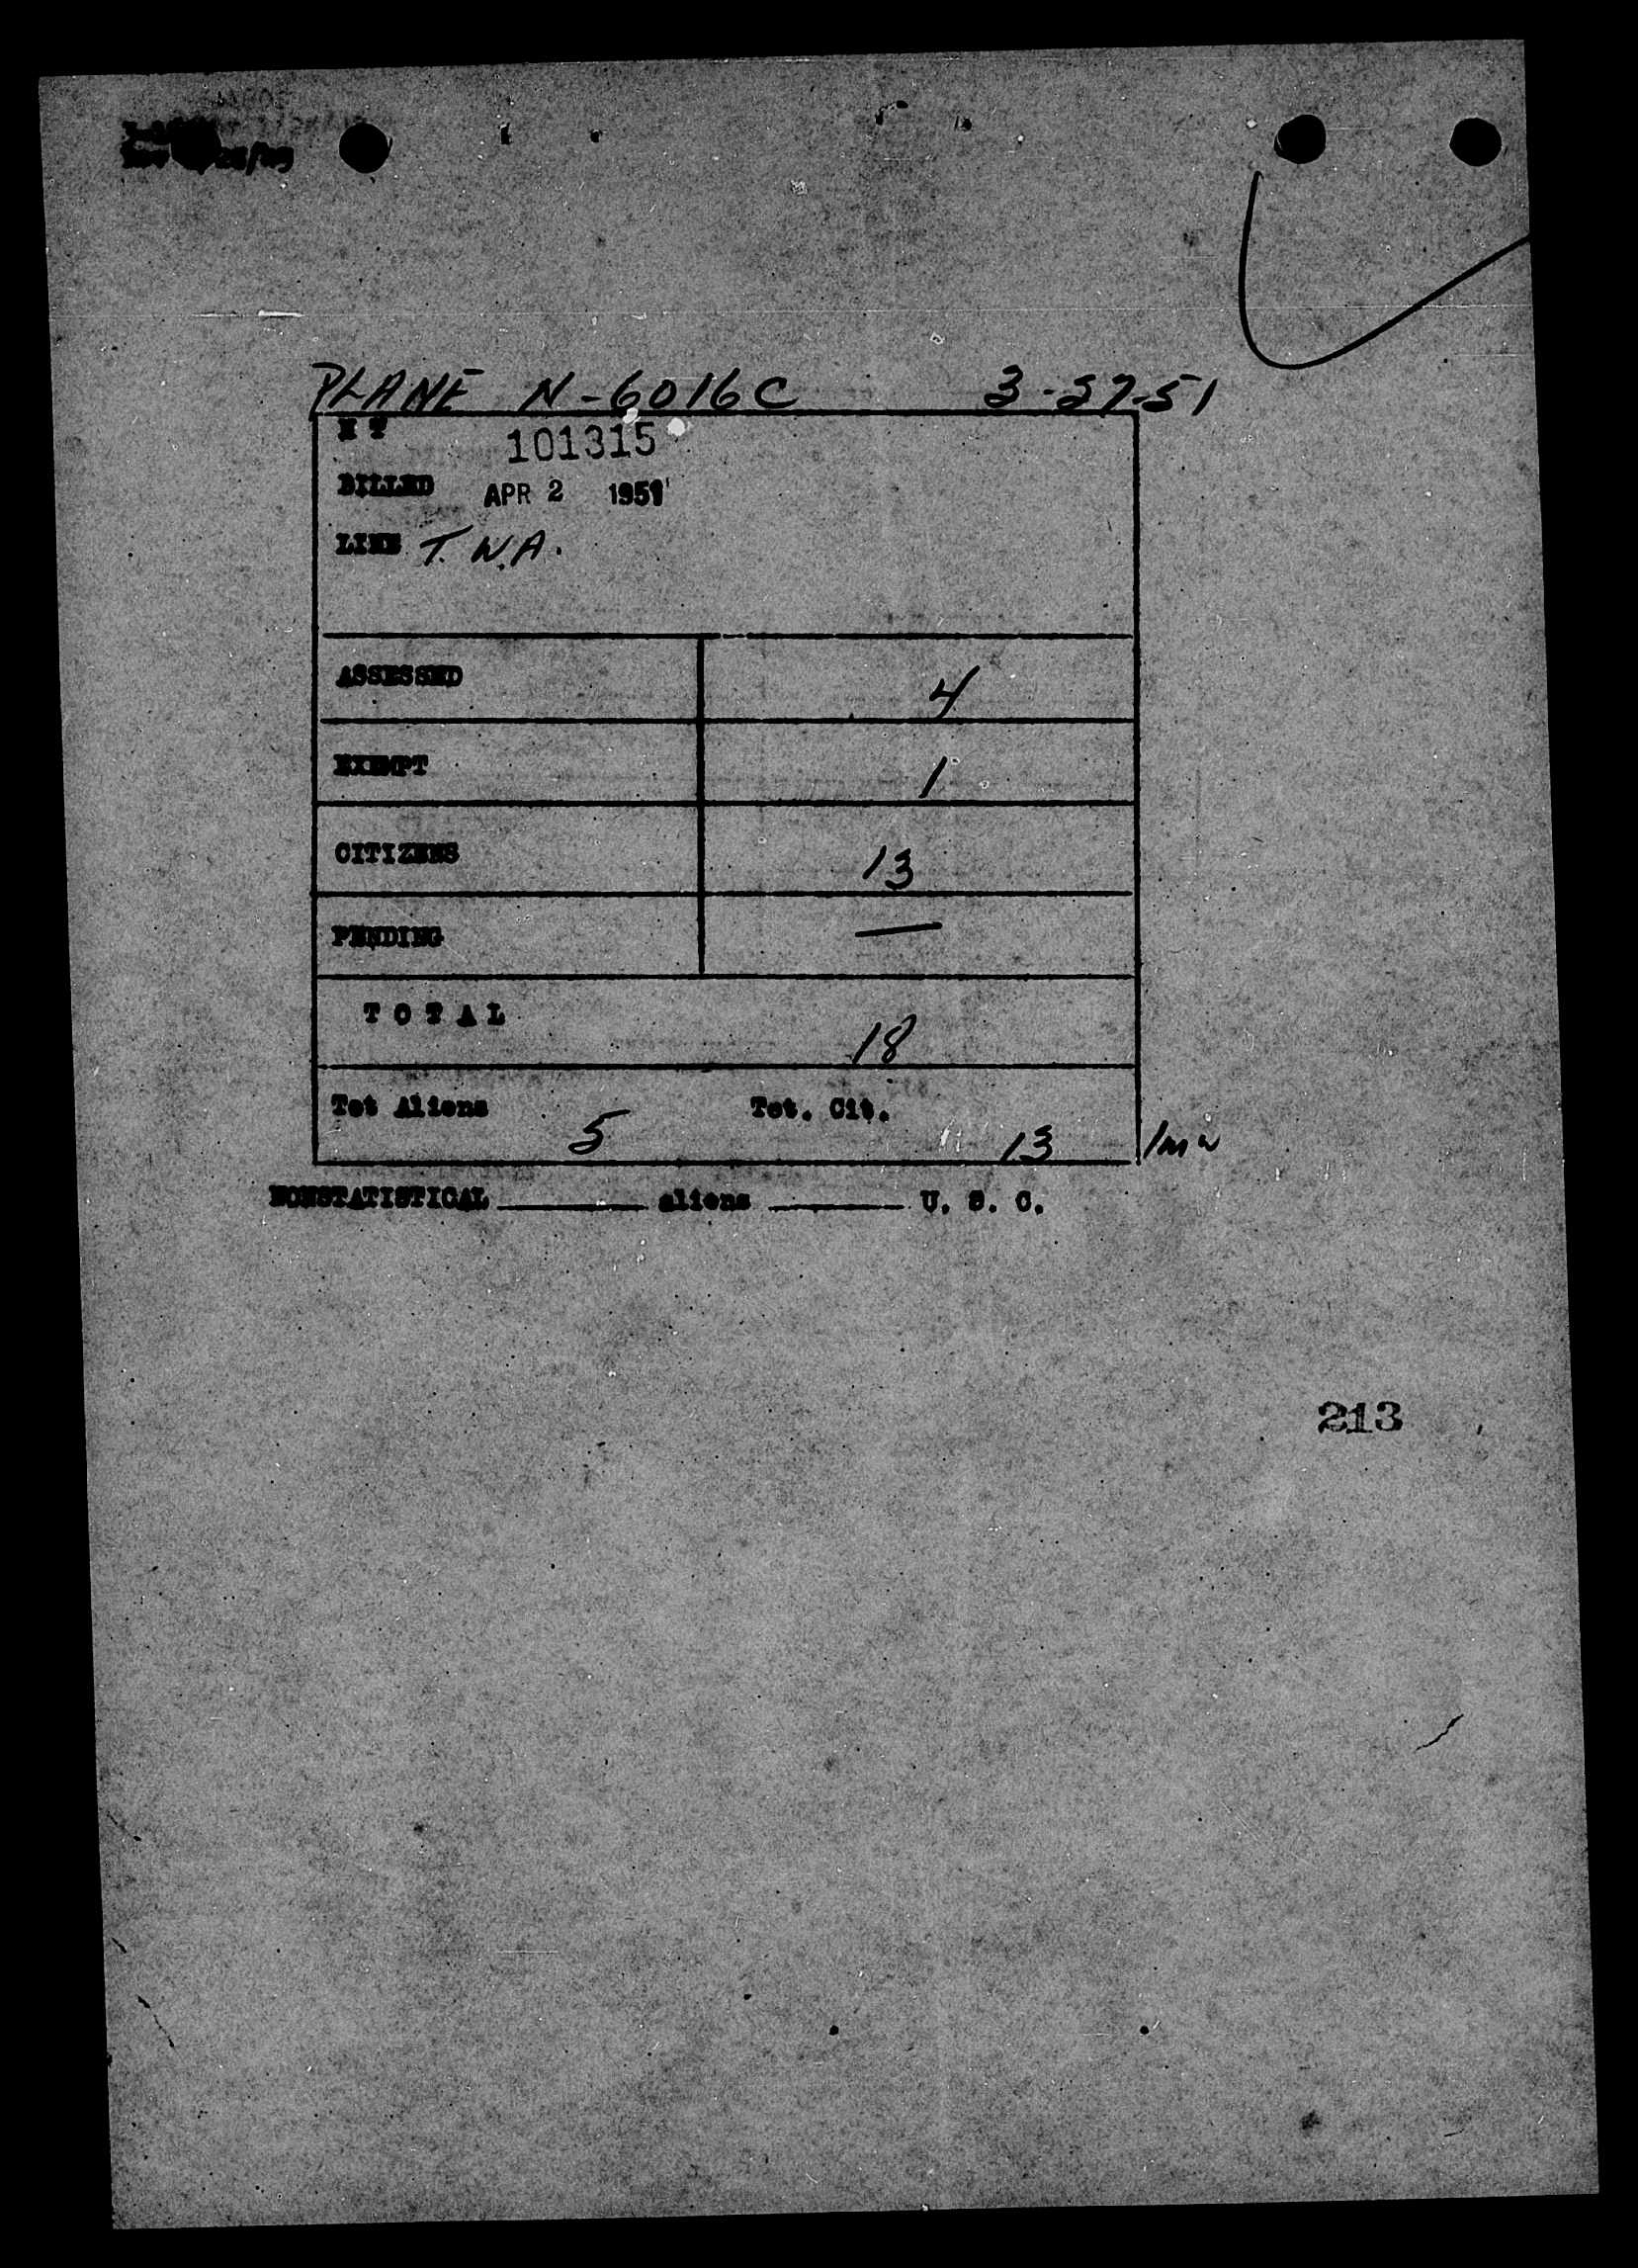 PLANE N-6016C 3-27-51
H T 101315
BILLED APR 2 1951
LINE T.W.A.
ASSESSED 4
EXEMPT 1
CITIZENS 13
PENDING —
T O T A L 18
Tot Aliens 5 Tot. Cit. 13
NONSTATISTICAL ______ aliens ______ U. S. C.
213